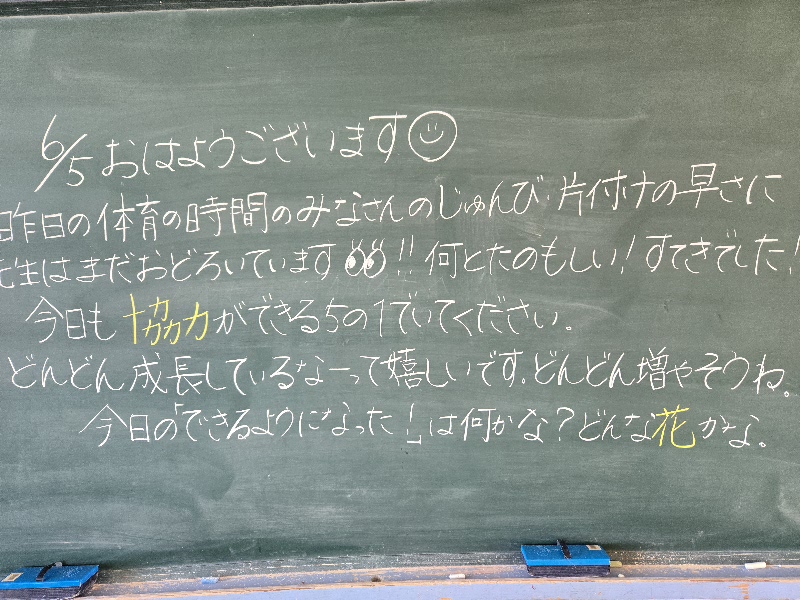 6/5 おはようございます
昨日の体育の時間のみなさんのじゅんび、片付けの早さに
先生はまだおどろいています!!何とたのもしい!すてきでした!
今日も協力ができる5の1でいてください。
どんどん成長しているなーって嬉しいです。どんどん増やそうね。
今日の「できるようになった!」は何かな?どんな花かな。